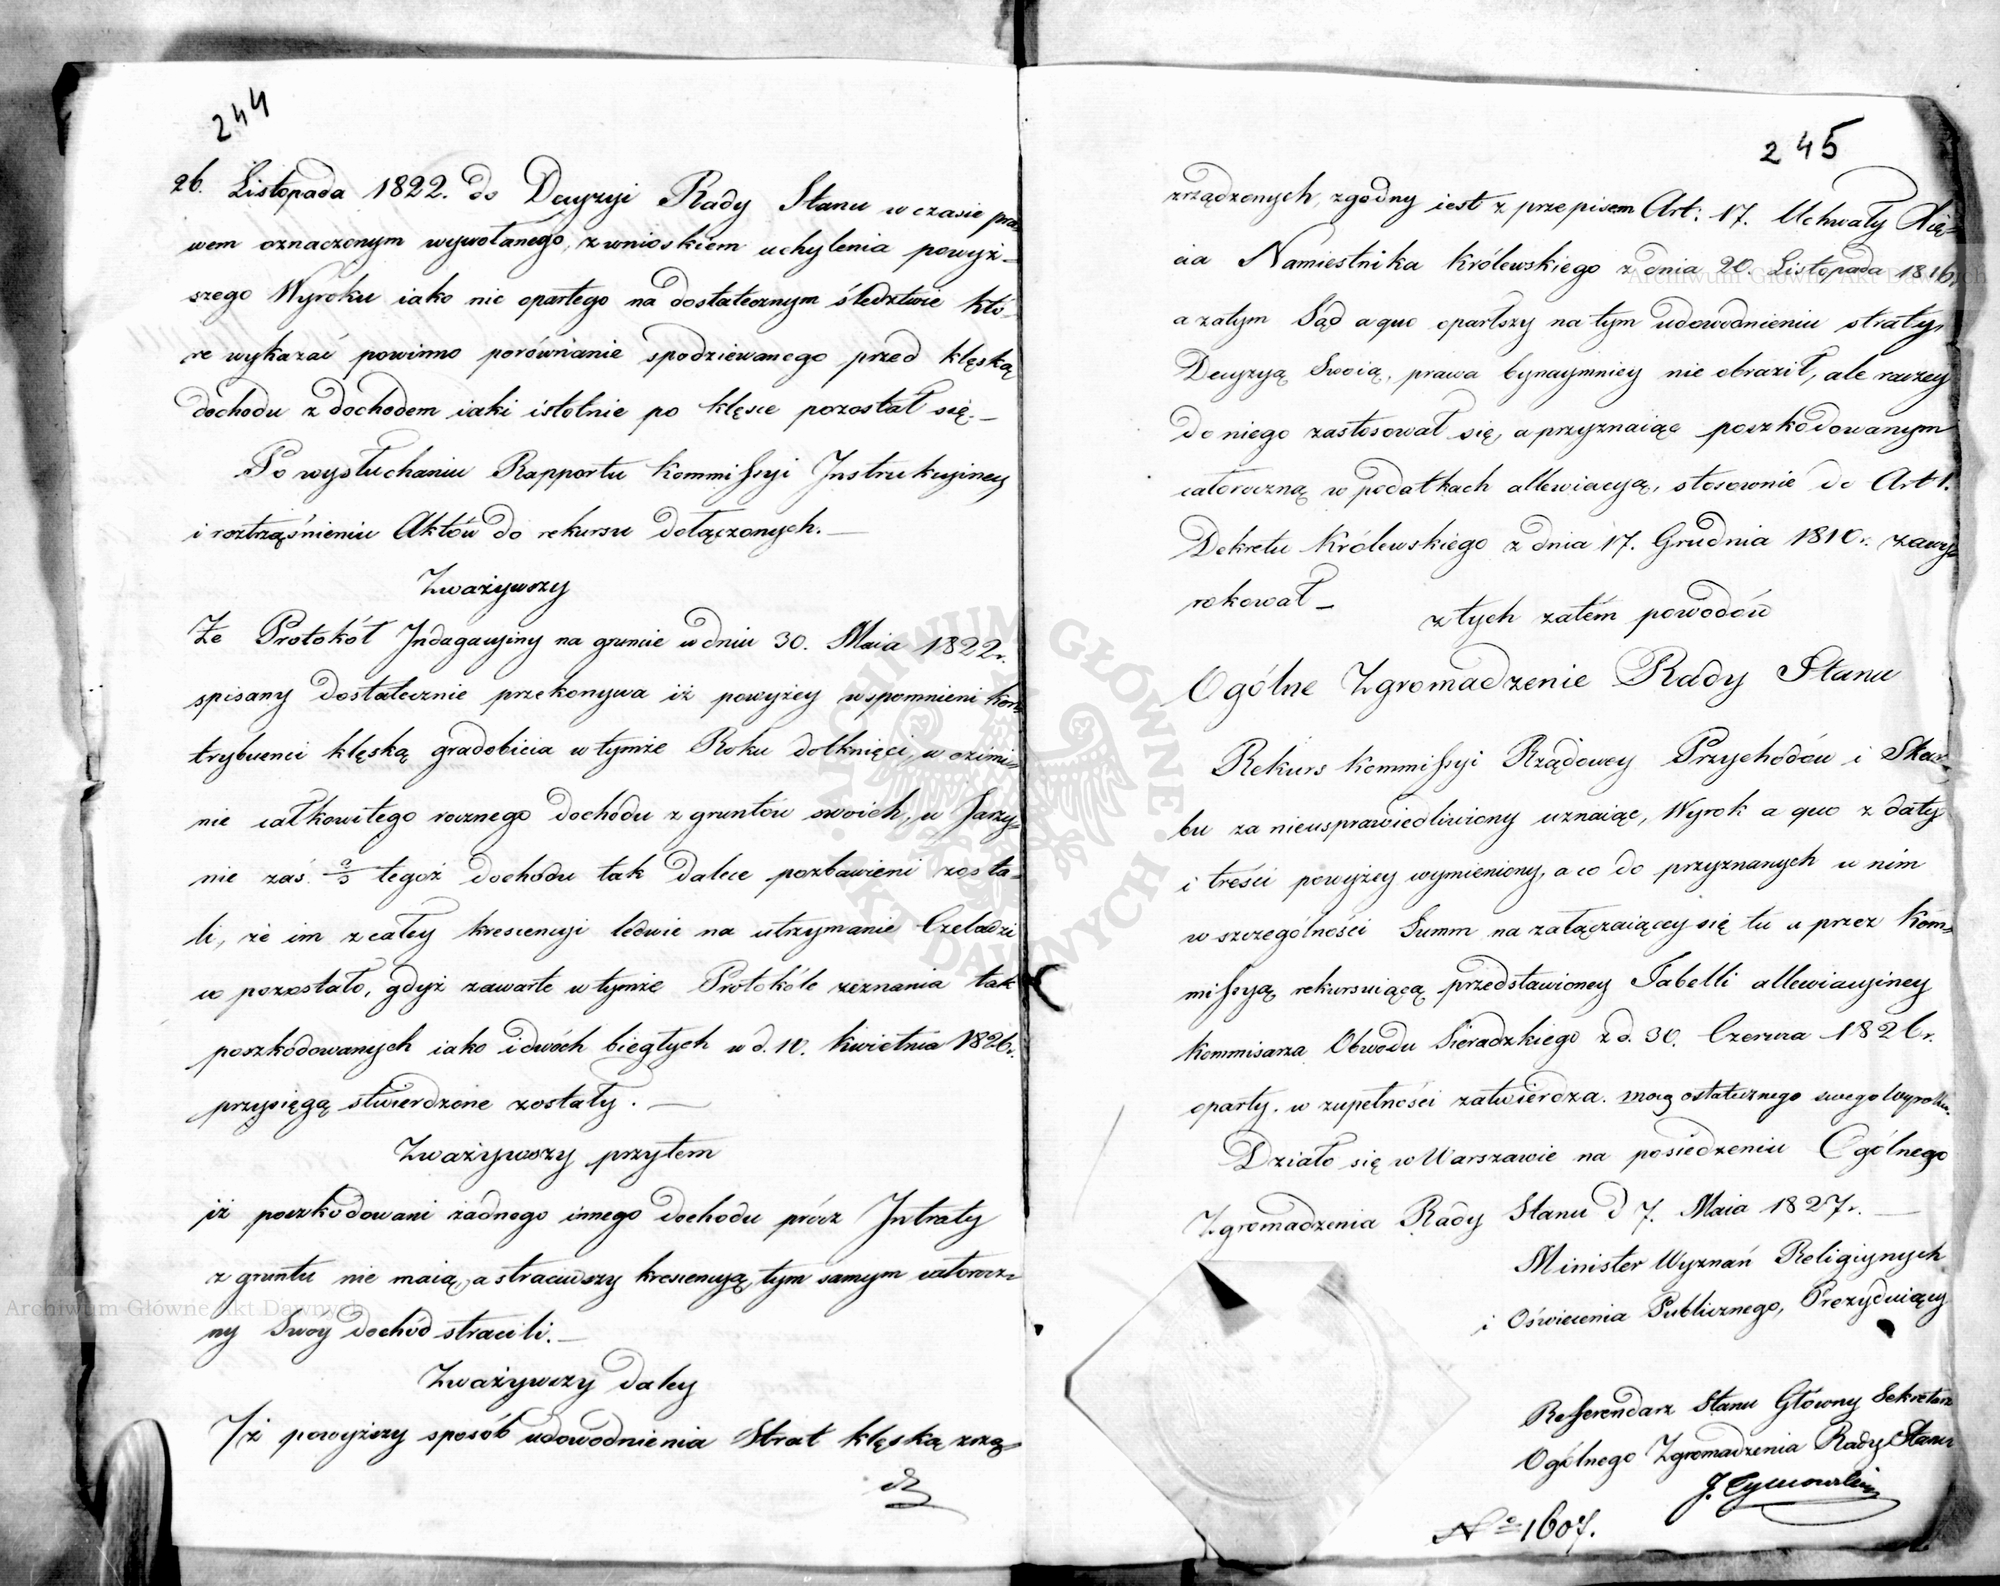 244
26. Listopada 1822. do Decyzyi Rady Stanu w czasie pra
wem oznaczonym wywołanego, z wnioskiem uchylenia powyż-
szego Wyroku iako nie opartego na dostatecznym śledztwie któ-
re wykazać powinno porównanie spodziewanego przed klęską
dochodu z dochodem iaki istotnie po klęsce pozostał się.—
Po wysłuchaniu Rapportu Kommissyi Instrukcyiney
i roztrząśnieniu Aktów do rekursu dołączonych.—
Zważywszy
Że Protokół Indagacyiny na gruncie w dniu 30. Maia 1822r.
spisany dostatecznie przekonywa iż powyżey wspomnieni Kon
trybuenci klęską gradobicia w tymże Roku dotknięci, w ozimi-
nie całkowitego rocznego dochodu z gruntów swoich, w Jarzy-
nie zaś 2/3 tegoż dochodu tak dalece pozbawieni zosta-
li, że im z całey krescencyi ledwie na utrzymanie Czeladzi
co pozostało, gdyż zawarte w tymże Protokóle zeznania tak
poszkodowanych iako i dwóch biegłych w d. 10. Kwietnia 1826r.
przysięgą stwierdzone zostały.—
Zważywszy przytem
iż poszkodowani żadnego innego dochodu prócz Intraty
z gruntu nie maią, a straciwszy krescencyą, tym samym całorocz-
ny Swoy dochód stracili.—
Zważywszy daley
Iż powyższy sposób udowodnienia Strat klęską zrzą-
245
zrządzonych, zgodny iest z przepisem Art: 17. Uchwały Xię-
cia Namiestnika Królewskiego z dnia 20. Listopada 1816.
a zatym Sąd a quo oparłszy na tym udowodnieniu straty,
Decyzyą Swoią, prawa bynaymniey nie obraził, ale raczey
do niego zastosował się, a przyznaiąc poszkodowanym
całoroczną w podatkach allewiacyą, stosownie do Art 1.
Dekretu Królewskiego z dnia 17. Grudnia 1810r. zawy-
rokował—
z tych zatém powodów
Ogólne Zgromadzenie Rady Stanu
Rekurs Kommissyi Rządowey Przychodów i Skar-
bu za nieusprawiedliwiony uznaiąc, Wyrok a quo z daty
i treści powyżey wymieniony, a co do przyznanych w nim
w szczególności Summ na załączaiącey się tu a przez Kom-
missyą rekursuiącą przedstawioney Tabelli allewiacyiney
Kommisarza Obwodu Sieradzkiego z d. 30. Czerwca 1826r.
oparty, w zupełności zatwierdza. mocą ostatecznego swego Wyroku.
Działo się w Warszawie na posiedzeniu Ogólnego
Zgromadzenia Rady Stanu d 7. Maia 1827r.—
Minister Wyznań Religiynych
i Oświecenia Publicznego, Prezyduiący
Refferendarz Stanu Główny Sekretarz
Ogólnego Zgromadzenia Rady Stanu
J. Tymowski
No 1607.
Archiwum Główne Akt Dawnych
Archiwum Główne Akt Dawnych
ARCHIWUM GŁÓWNE · AKT DAWNYCH ·